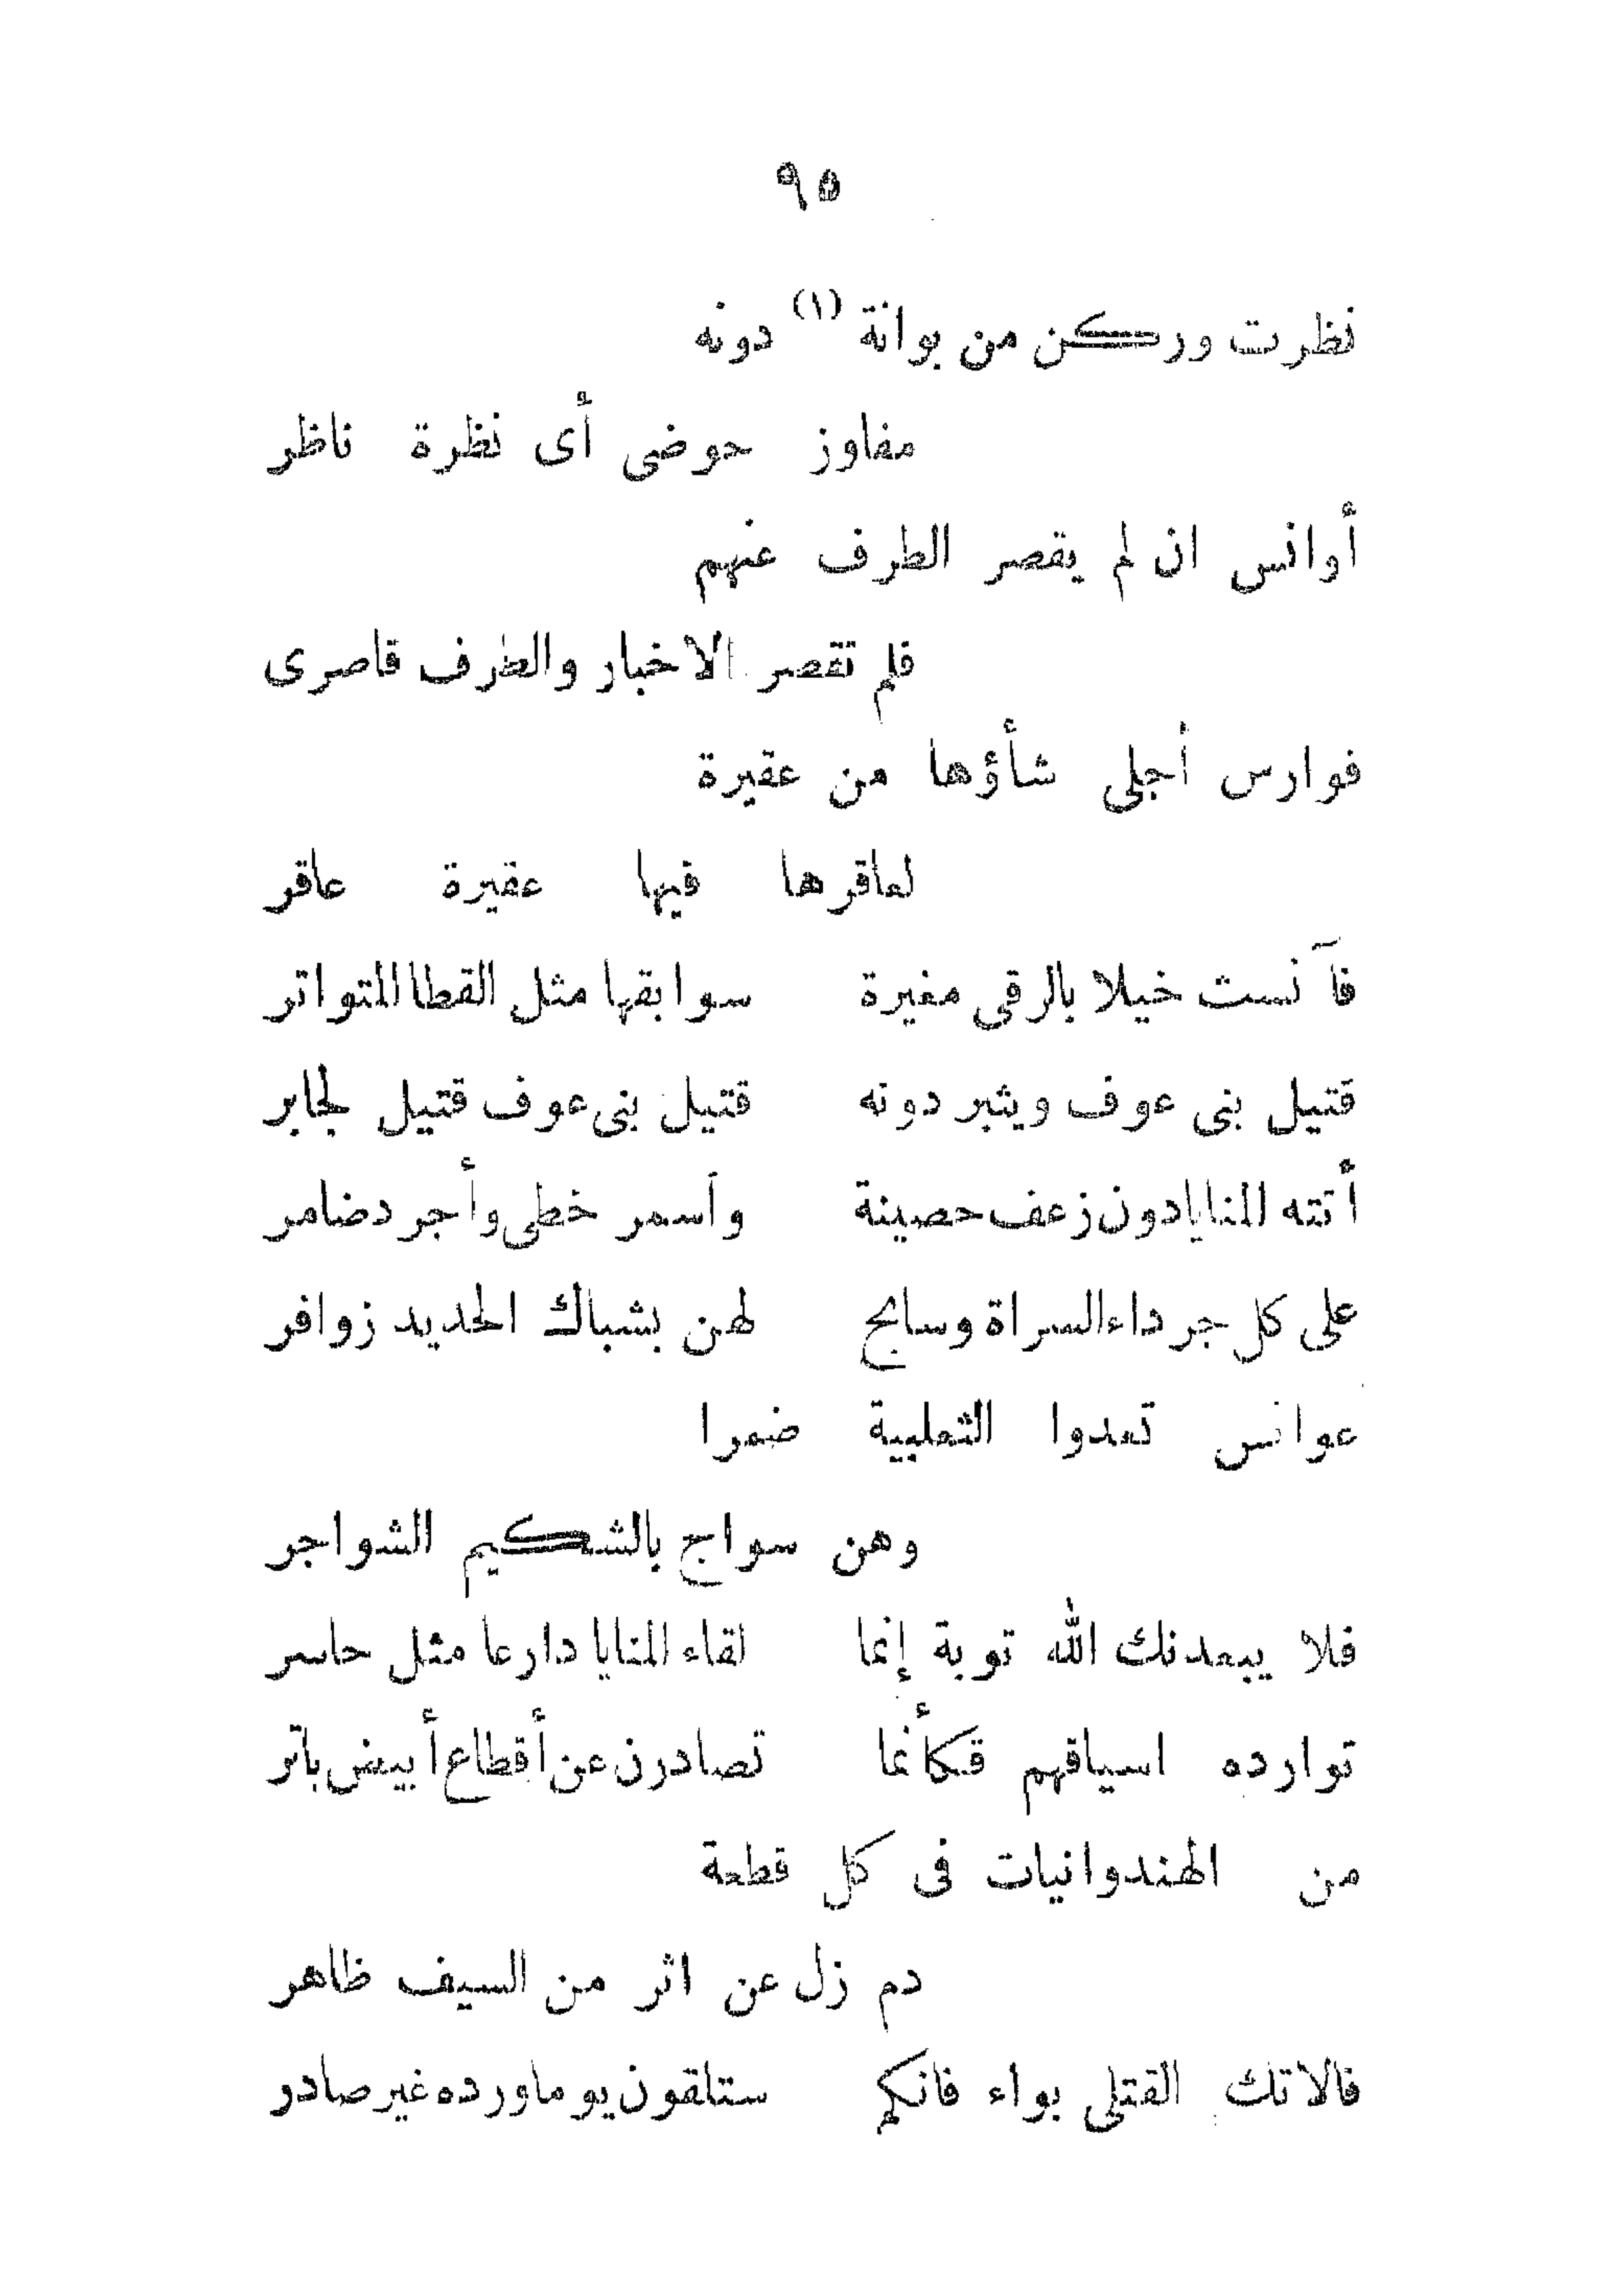 ٩٥
نظرت وركن من بوانة (١) دونه
مفاوز حوضى أى نظرة ناظر
أوانس ان لم يقصر الطرف عنهم
فلم تقصر الاخبار والطرف قاصرى
فوارس أجلى شأؤها من عقيرة
لعاقرها فيها عقيرة عاقر
فآنست خيلا بالرقى مغيرة سوابقها مثل القطا المتواتر
قتيل بنى عوف ويثبر دونه قتيل بنى عوف قتيل لجابر
أتته المنايا دون زعف حصينة وأسمر خطى وأجرد ضامر
على كل جرداء السراة وسابح لهن بشباك الحديد زوافر
عوانس تعدوا الثعلبية ضمرا
وهن سواج بالشكيم الشواجر
فلا يبعدنك الله توبة إنما لقاء المنايا دارعا مثل حاسر
توارده اسيافهم فكأنما تصادرن عن أقطاع أبيض باتر
من الهندوانيات فى كل قطعة
دم زل عن اثر من السيف ظاهر
فالاتك القتلى بواء فانكم ستلقون يوما ورده غير صادر